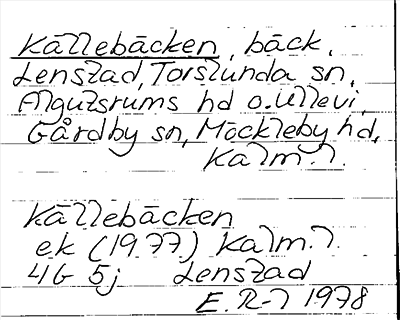 Källebäcken, bäck,
Lenstad, Torslunda sn,
Algutsrums hd o. Ullevi,
Gårdby sn, Möckleby hd,
Kalm. l.
Källebäcken
ek (1977) Kalm. l.
4G 5j Lenstad
E. R-l 1978